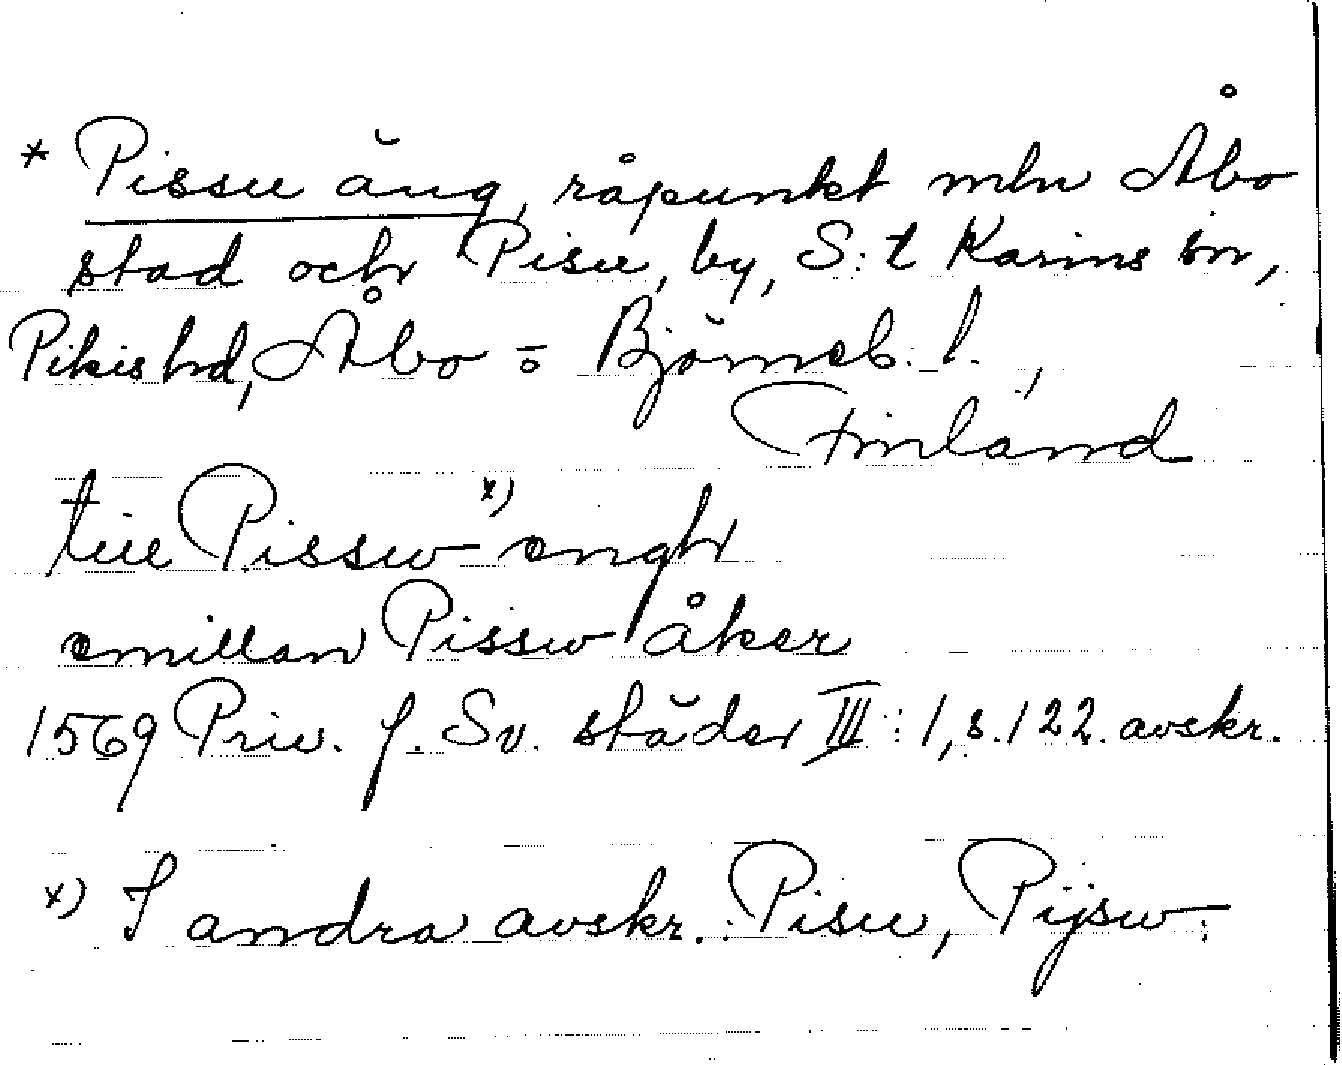 * Pissu äng, råpunkt mln Åbo
stad och Pisu, by, S:t Karins sn,
Pikis hd, Åbo- o Björneb. l.,
Finland
till Pissw x) engh
emillan Pissw åker
1569 Priv. f. Sv. städer III: 1, s. 122. avskr.
x) I andra avskr. Pisu, Pijsw.